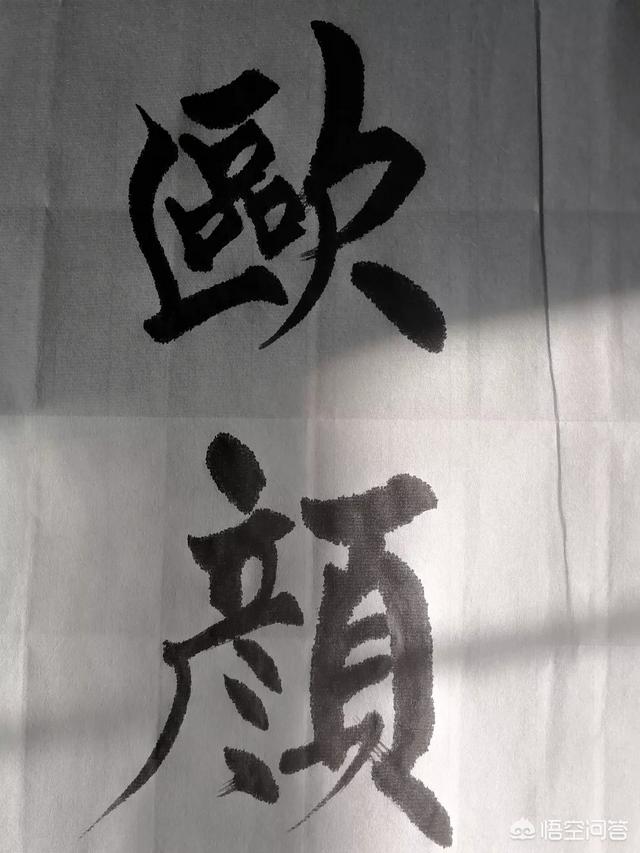 歐
顔
悟空问答